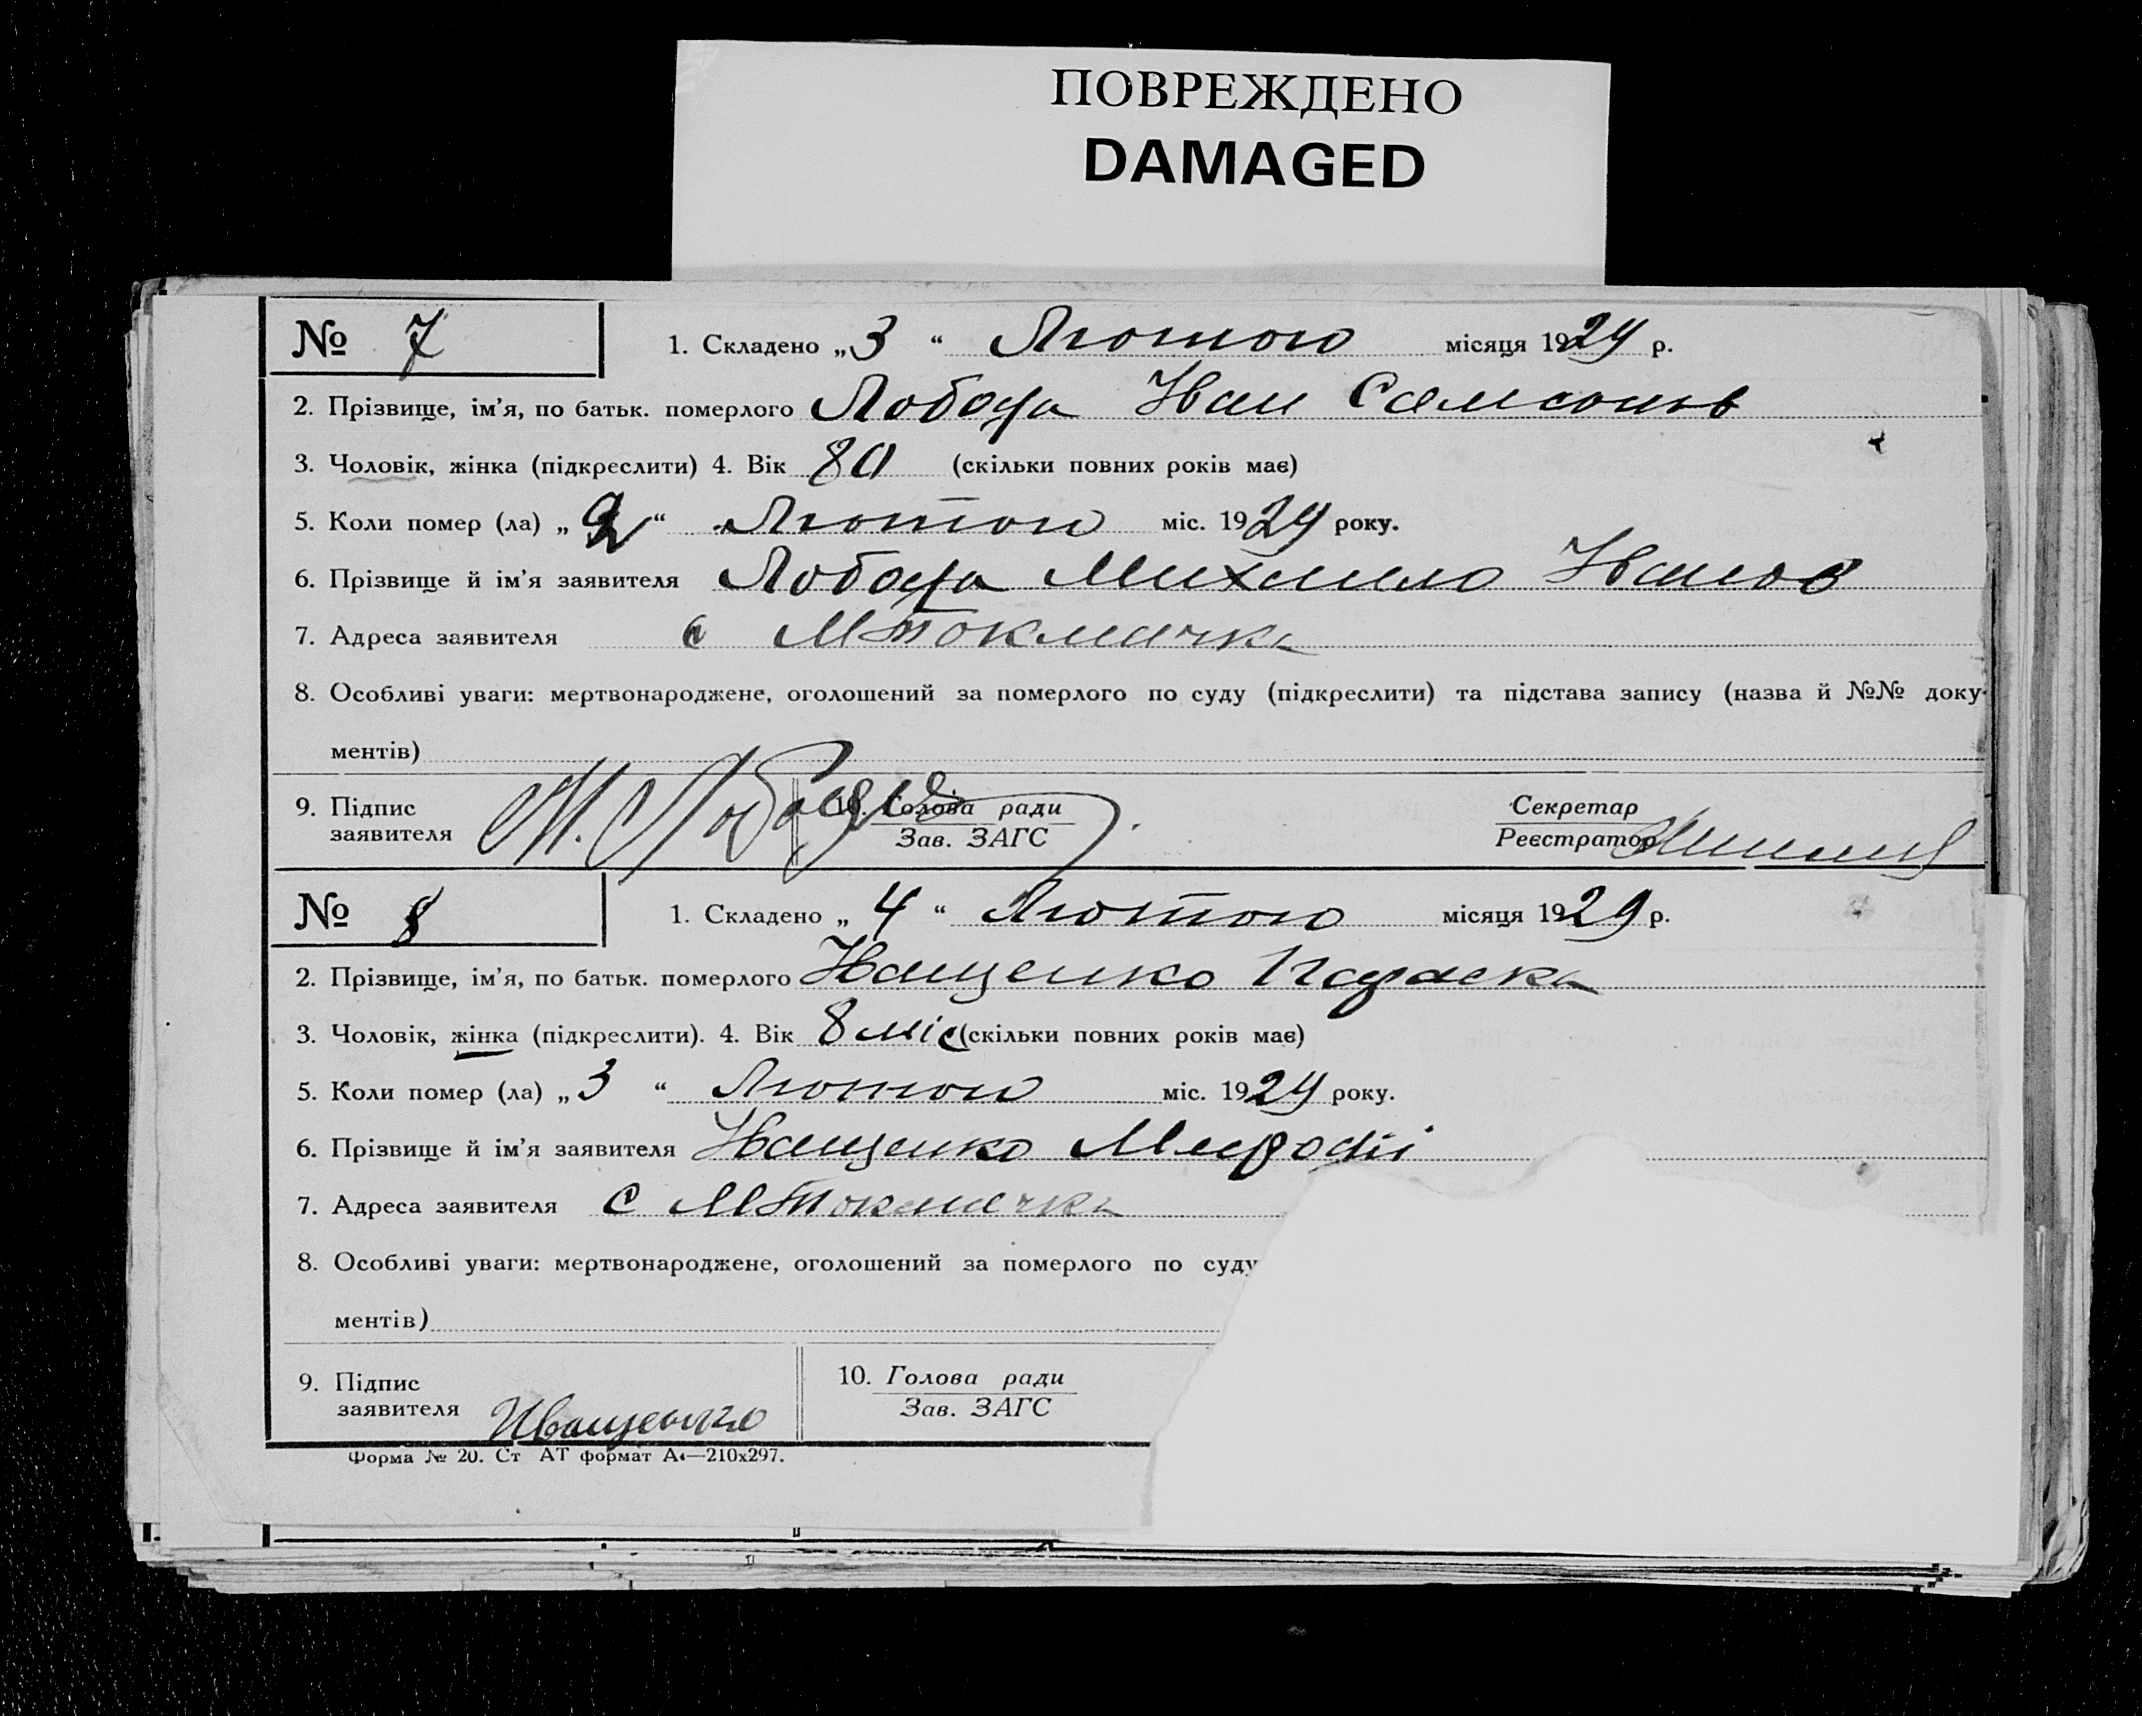 ПОВРЕЖДЕНО
DAMAGED
№ 7 1. Складено „3“ Лютого місяця 1929 р.
2. Прізвище, ім’я, по батьк. померлого Лобода Иван Самсонов
3. Чоловік, жінка (підкреслити) 4. Вік 80 (скільки повних років має)
5. Коли помер (ла) „2“ Лютого міс. 1929 року.
6. Прізвище й ім’я заявителя Лобода Михаило Иванов
7. Адреса заявителя с МТокмачка
8. Особливі уваги: мертвонароджене, оголошений за померлого по суду (підкреслити) та підстава запису (назва й №№ доку-
ментів)
9. Підпис заявителя М. Лобода 10. Голова ради Зав. ЗАГС Секретар Реєстратор
№ 8 1. Складено „4“ Лютого місяця 1929 р.
2. Прізвище, ім’я, по батьк. померлого Иващенко Параска
3. Чоловік, жінка (підкреслити). 4. Вік 8 міс (скільки повних років має)
5. Коли помер (ла) „3“ Лютого міс. 1929 року.
6. Прізвище й ім’я заявителя Иващенко
7. Адреса заявителя с МТокмачка
8. Особливі уваги: мертвонароджене, оголошений за померлого по суду
ментів)
9. Підпис заявителя Иващенко 10. Голова ради Зав. ЗАГС
Форма № 20. Ст АТ формат А4—210x297.